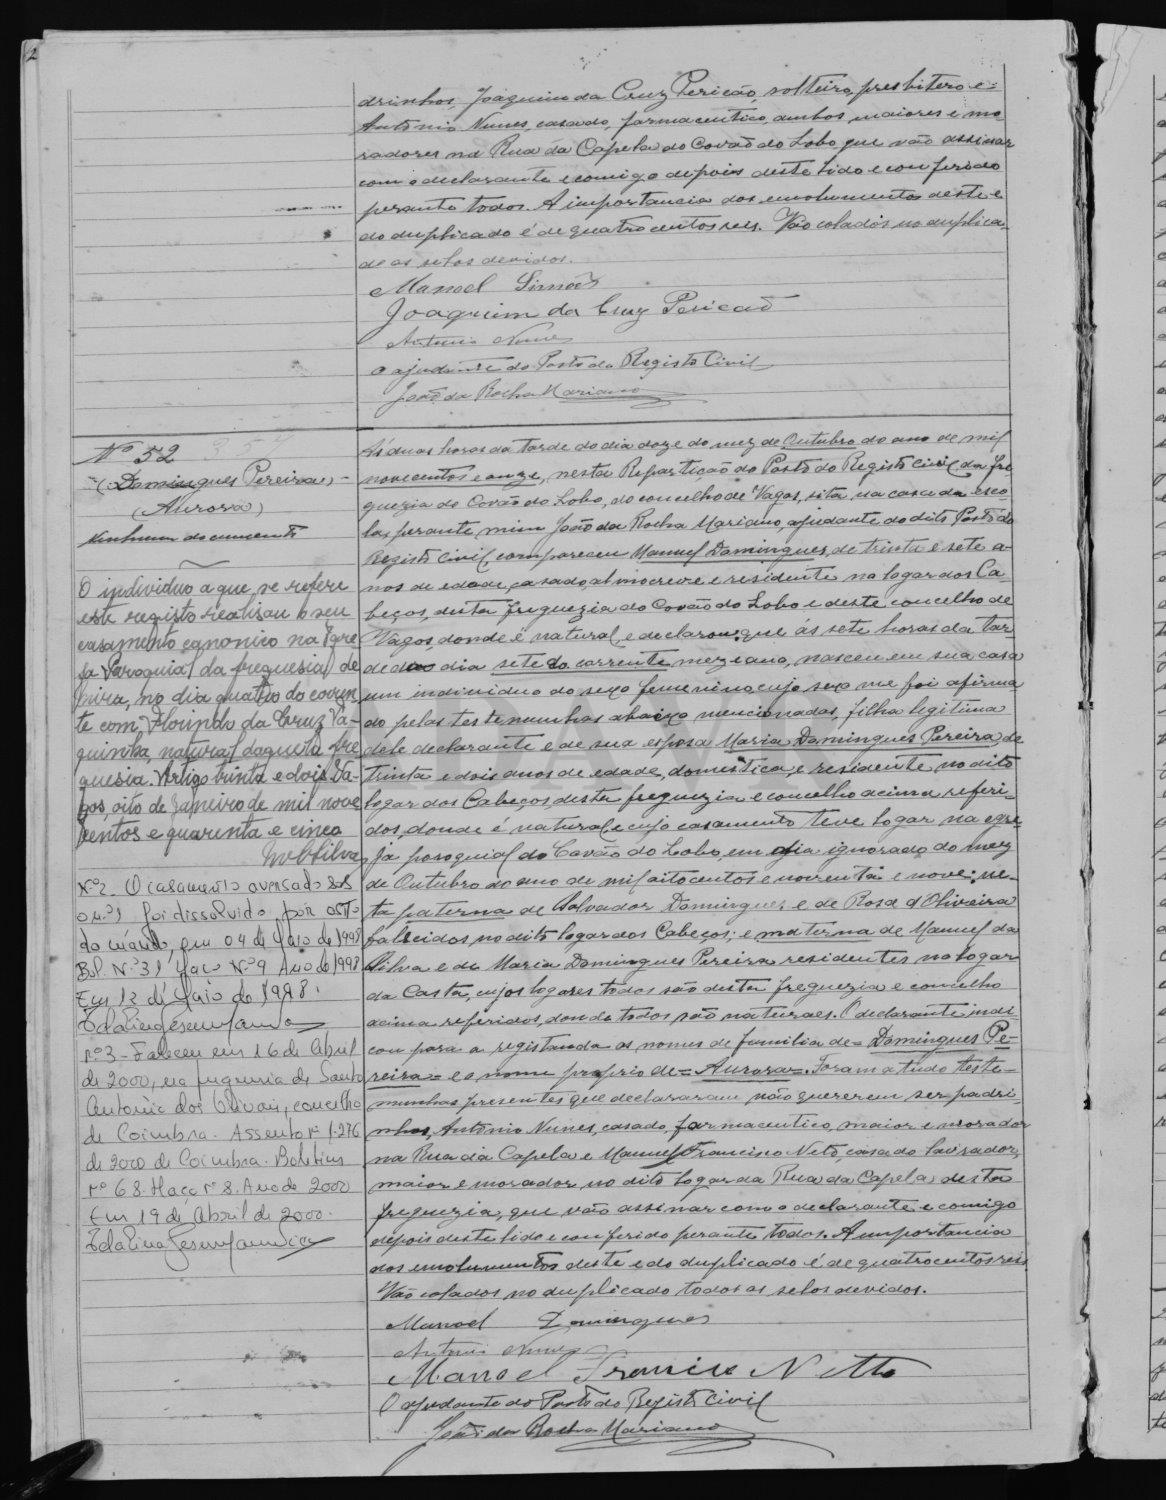 drinhos, Joaquim da Cruz Pericão, solteiro, presbitero e=
Antonio Nunes, casado, farmaceutico, ambos maiores e mo-
radores na Rua da Capela do Covão do Lobo, que vão assinar
com o declarante e comigo depois deste lido e conferido
perante todos. A importancia dos emolumentos deste e
do duplicado é de quatrocentos reis. Vão colados no duplica-
do os selos devidos.
Manoel Simões
Joaquim da Cruz Pericaõ
Antonio Nunes
O ajudante do Posto do Registo Civil
João da Rocha Mariano
Nº 52 357
(Domingues Pereira)
(Aurora)
Nenhum documento
O individuo a que se refere
este registo realisou o seu
casamento canonico na Igre
ja Paroquial da freguesia de
Mira, no dia quatro do corren-
te com, Florindo da Cruz Va-
quinha, natural daquela fre
guesia. Artigo trinta e dois. Va-
gos, oito de Janeiro de mil nove
centos e quarenta e cinco
Nº2- O casamento averbado sob
o nº1 foi dissolvido por óbito
do marido, em 04 de Maio de 1998
Bol. Nº 31 Maço Nº 9 Ano de 1998
Em 12 de Maio de 1998.
nº3- Faleceu em 16 de Abril
de 2000, na freguesia de Santo
António dos Olivais, concelho
de Coimbra. Assento nº 1.276
de 2000 de Coimbra. Boletim
nº 68. Maço nº 8. Ano de 2000
Em 19 de Abril de 2000.
Ás duas horas da tarde do dia doze do mez de Outubro do ano de mil
novecentos e onze, nesta Repartição do Posto do Registo Civil da fre
guezia do Covão do Lobo, do concelho de Vagos, sita na casa da esco-
la, perante mim João da Rocha Mariano, ajudante do dito Posto do
Registo Civil, compareceu Manuel Domingues, de trinta e sete a-
nos de edade, casado, almocreve e residente no logar dos Ca-
beços, desta freguezia do Covão do Lobo e deste concelho de
Vagos, donde é natural, e declarou: que ás sete horas da tar
de do dia sete do corrente mez e ano, nasceu em sua casa
um individuo do sexo femenino, cujo sexo me foi afirma
do pelas testemunhas abaixo mencionadas, filha legitima
dele declarante e de sua esposa Maria Domingues Pereira, de
trinta e dois anos de edade, domestica, e residente no dito
logar dos Cabeços, desta freguezia e concelho acima referi-
dos, donde é natural, e cujo casamento teve logar na egre-
ja paroquial do Covão do Lobo, em dia ignorado do mez
de Outubro do ano de mil oitocentos e noventa e nove: ne-
ta paterna de Salvador Domingues e de Rosa d'Oliveira
falecidos no dito logar dos Cabeços; e materna de Manuel da
Silva e de Maria Domingues Pereira residentes no logar
da Costa, cujos logares todos são desta freguezia e concelho
acima referidos, donde todos são naturaes. O declarante indi
cou para a registanda os nomes de familia de= Domingues Pe-
reira= e o nome proprio de= Aurora=. Foram a tudo teste-
munhas presentes, que declararam não quererem ser padri-
nhos, Antonio Nunes, casado, farmaceutico, maior e morador
na Rua da Capela e Manuel Francisco Neto, casado lavrador,
maior e morador no dito logar da Rua da Capela desta
freguezia, que vão assinar com o declarante e comigo
depois deste lido e conferido perante todos. A importancia
dos emolumentos deste e do duplicado é de quatrocentos reis
Vão colados no duplicado todos os selos devidos.
Manoel Domingues
Antonio Nunes
Manoel Francisco Netto
O ajudante do Posto do Registo Civil
João da Rocha Mariano